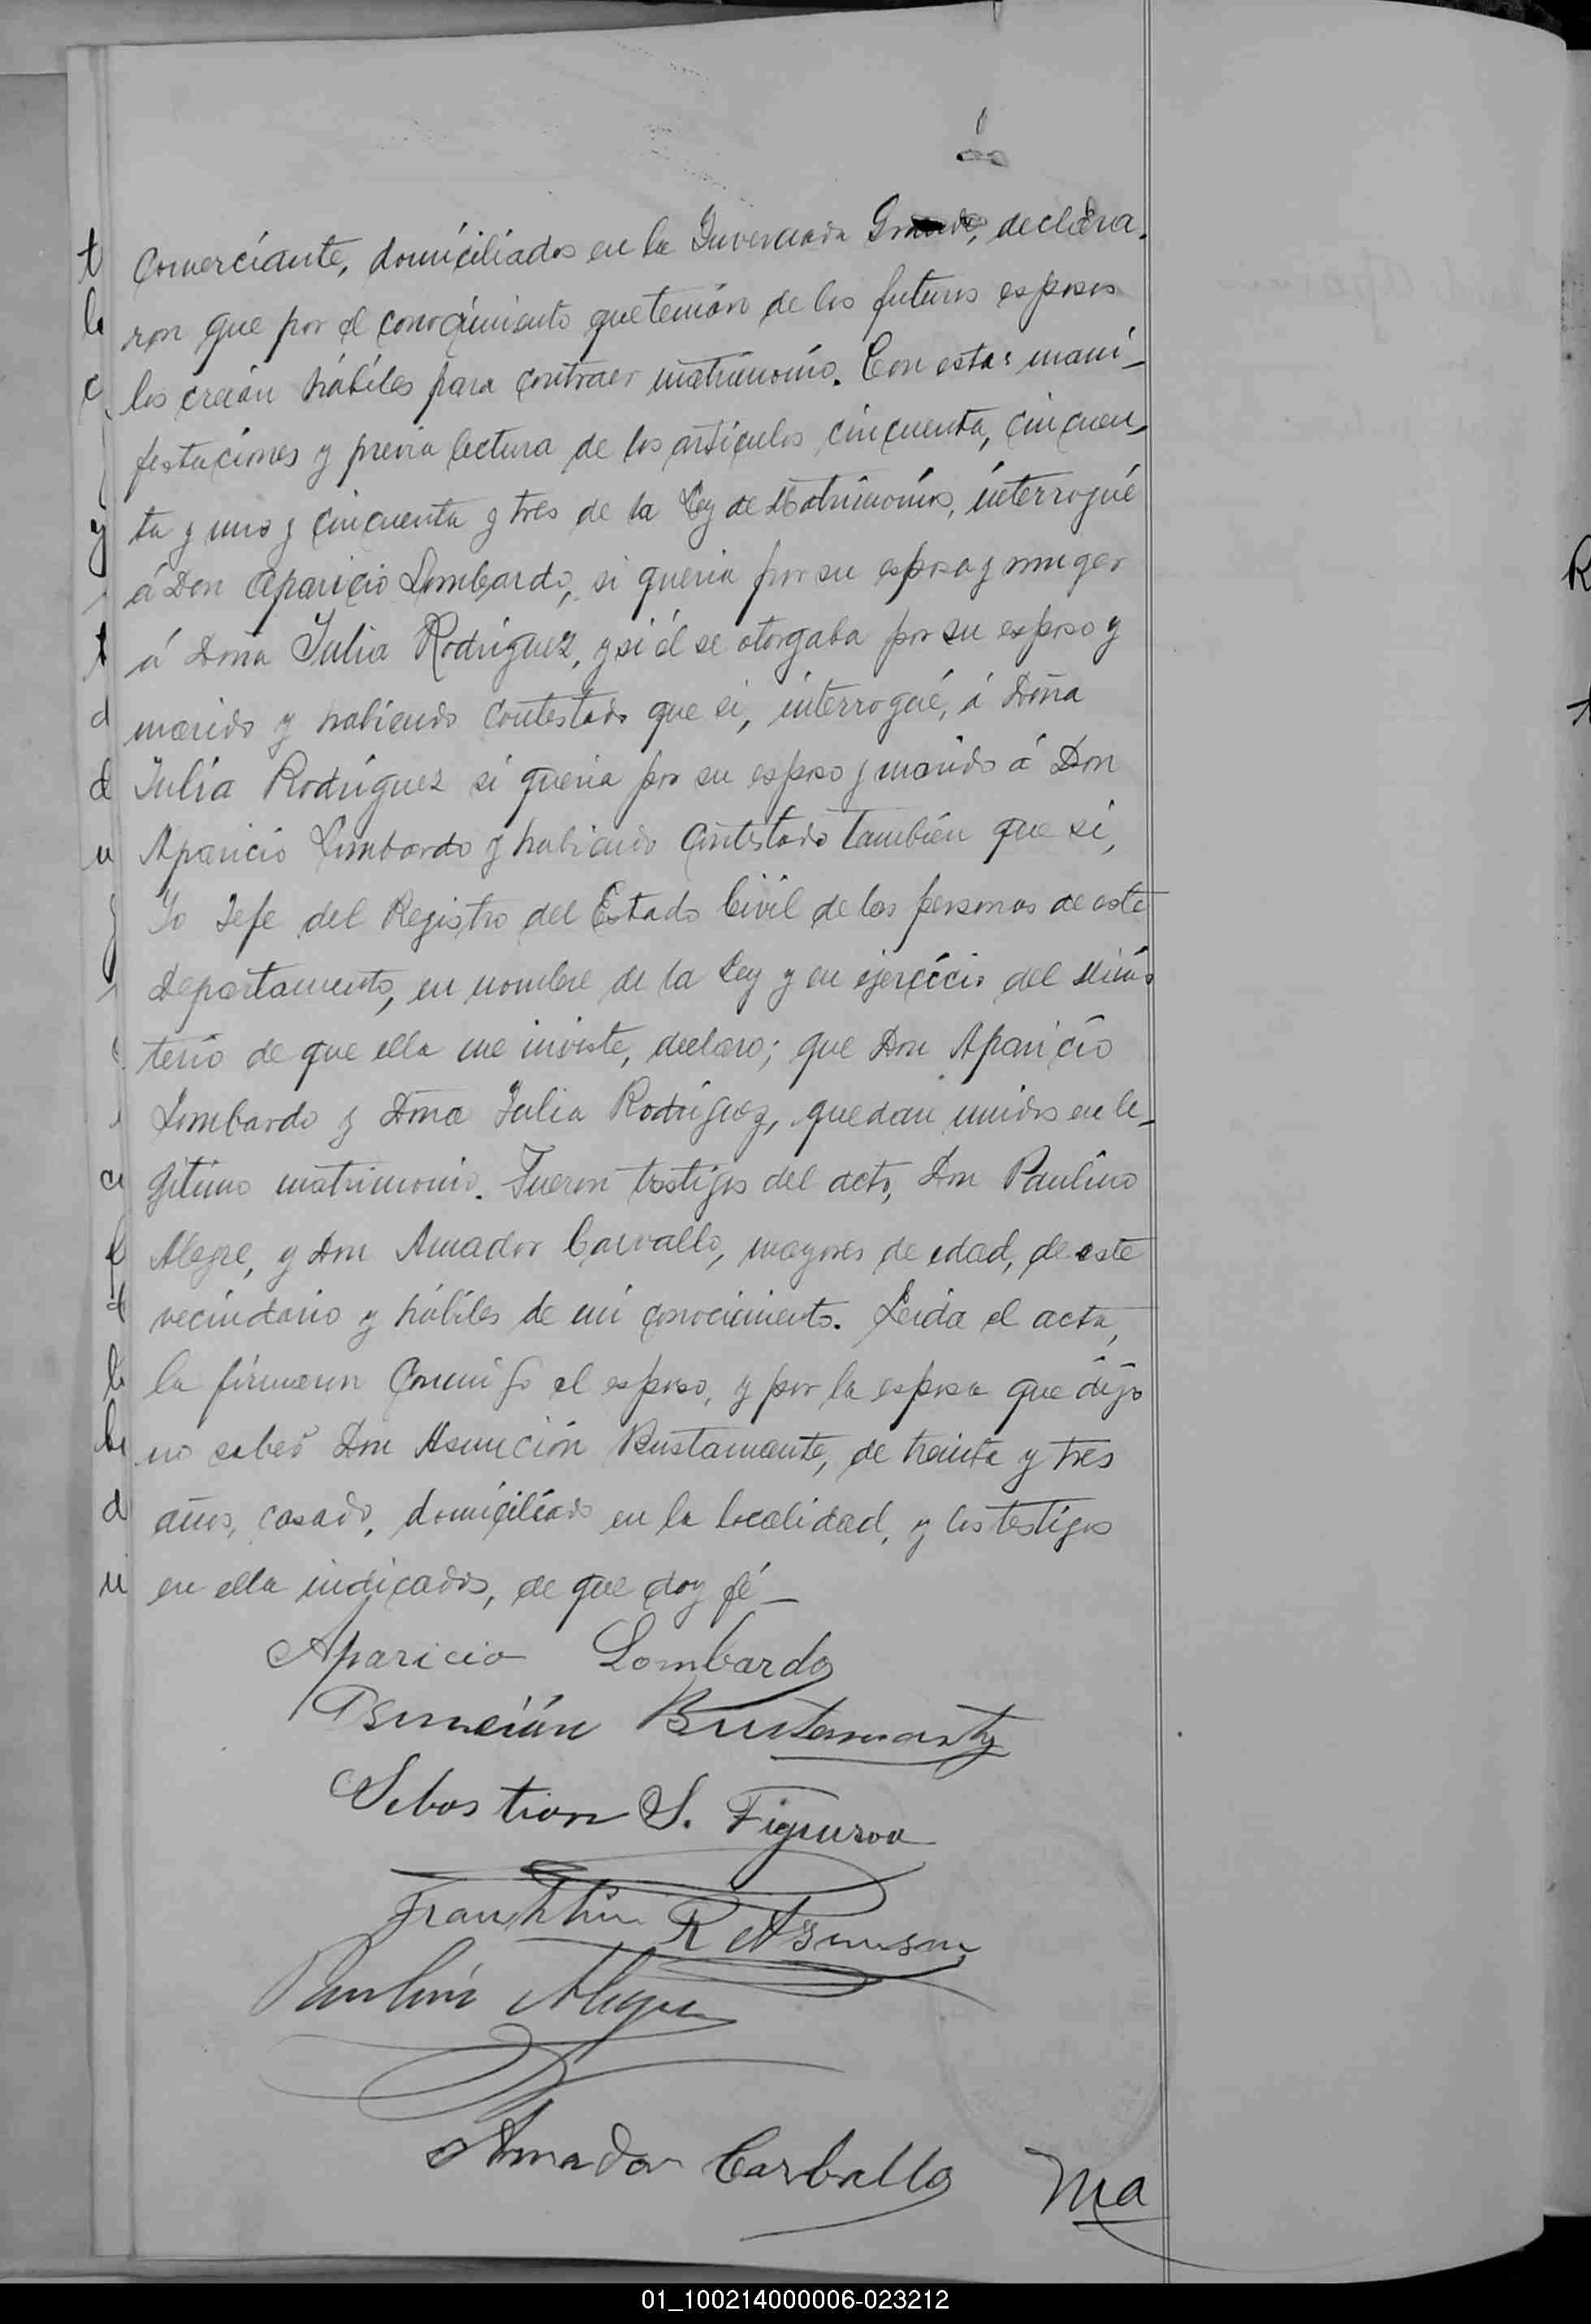 Comerciante, domiciliados en la Invernada Grande, declara-
ron que por el conocimiento que tenían de los futuros esposos
los creían hábiles para contraer matrimonio. Con estas mani-
festaciones y previa lectura de los artículos cincuenta, cincuen-
ta y uno y cincuenta y tres de la Ley de Matrimonios, interrogué
á Don Aparicio Lombardo, si queria por su esposa y muger
á Doña Julia Rodriguez, y si él se otorgaba por su esposo y
marido y habiendo contestado que si, interrogué, á Doña
Julia Rodriguez si queria por su esposo y marido á Don
Aparicio Lombardo y habiendo contestado también que si,
Yo Jefe del Registro del Estado Civil de las personas de este
Departamento, en nombre de la Ley y en ejercicio del Minis
terio de que ella me inviste, declaro; que Don Aparicio
Lombardo y Doña Julia Rodriguez, quedan unidos en le-
gitimo matrimonio. Fueron testigos del acto, Don Paulino
Alegre, y Don Amador Carvallo, mayores de edad, de este
vecindario y hábiles de mi conocimiento. Leida el acta,
la firmaron conmigo el esposo, y por la esposa que dijo
no saber Don Asunción Bustamante, de treinta y tres
años, casado, domiciliado en la localidad, y los testigos
en ella indicados, de que doy fé
Aparicio Lombardo
Asunción Bustamante
Sebastian S. Figueroa
Franklin R
Paulino Alegre
Amador Carballo
Ma
01_100214000006-023212